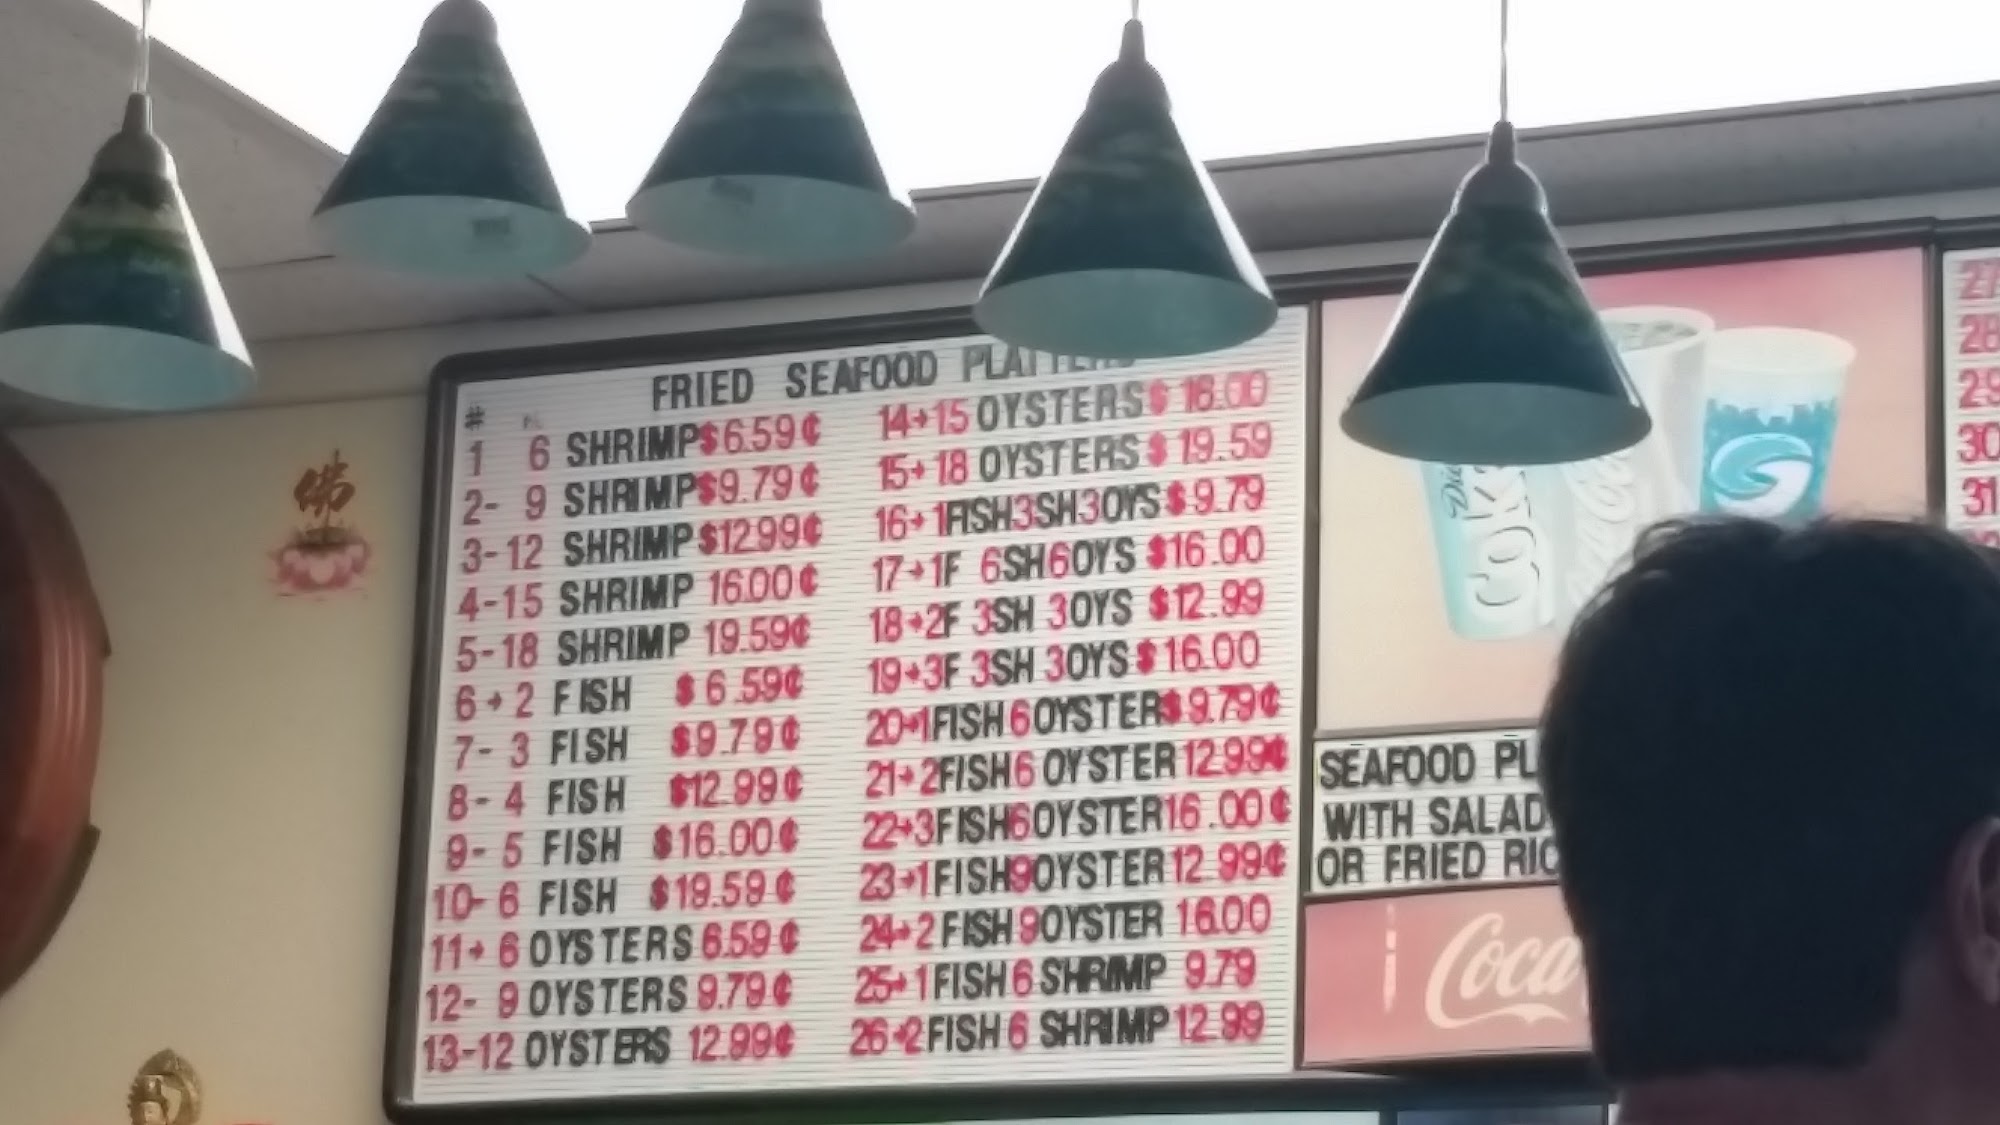 佛
FRIED SEAFOOD PLATTERS
#
1 6 SHRIMP $6.59¢
2- 9 SHRIMP $9.79¢
3-12 SHRIMP $12.99¢
4-15 SHRIMP 16.00¢
5-18 SHRIMP 19.59¢
6+2 FISH $6.59¢
7- 3 FISH $9.79¢
8- 4 FISH $12.99¢
9- 5 FISH $16.00¢
10- 6 FISH $19.59¢
11+ 6 OYSTERS 6.59¢
12- 9 OYSTERS 9.79¢
13-12 OYSTERS 12.99¢
14+15 OYSTERS $16.00
15+18 OYSTERS $19.59
16+1FISH3SH3OYS $9.79
17+1F 6SH6OYS $16.00
18+2F 3SH 3OYS $12.99
19+3F 3SH 3OYS $16.00
20+1FISH 6OYSTER $9.79¢
21+2FISH6 OYSTER 12.99¢
22+3FISH6OYSTER 16.00¢
23+1FISH9OYSTER 12.99¢
24+2 FISH 9OYSTER 16.00
25+1FISH 6 SHRIMP 9.79
26+2FISH 6 SHRIMP 12.99
Diet
Coke
Coca-Cola
SEAFOOD PL
WITH SALAD
OR FRIED RIC
Coca
27
28
29
30
31